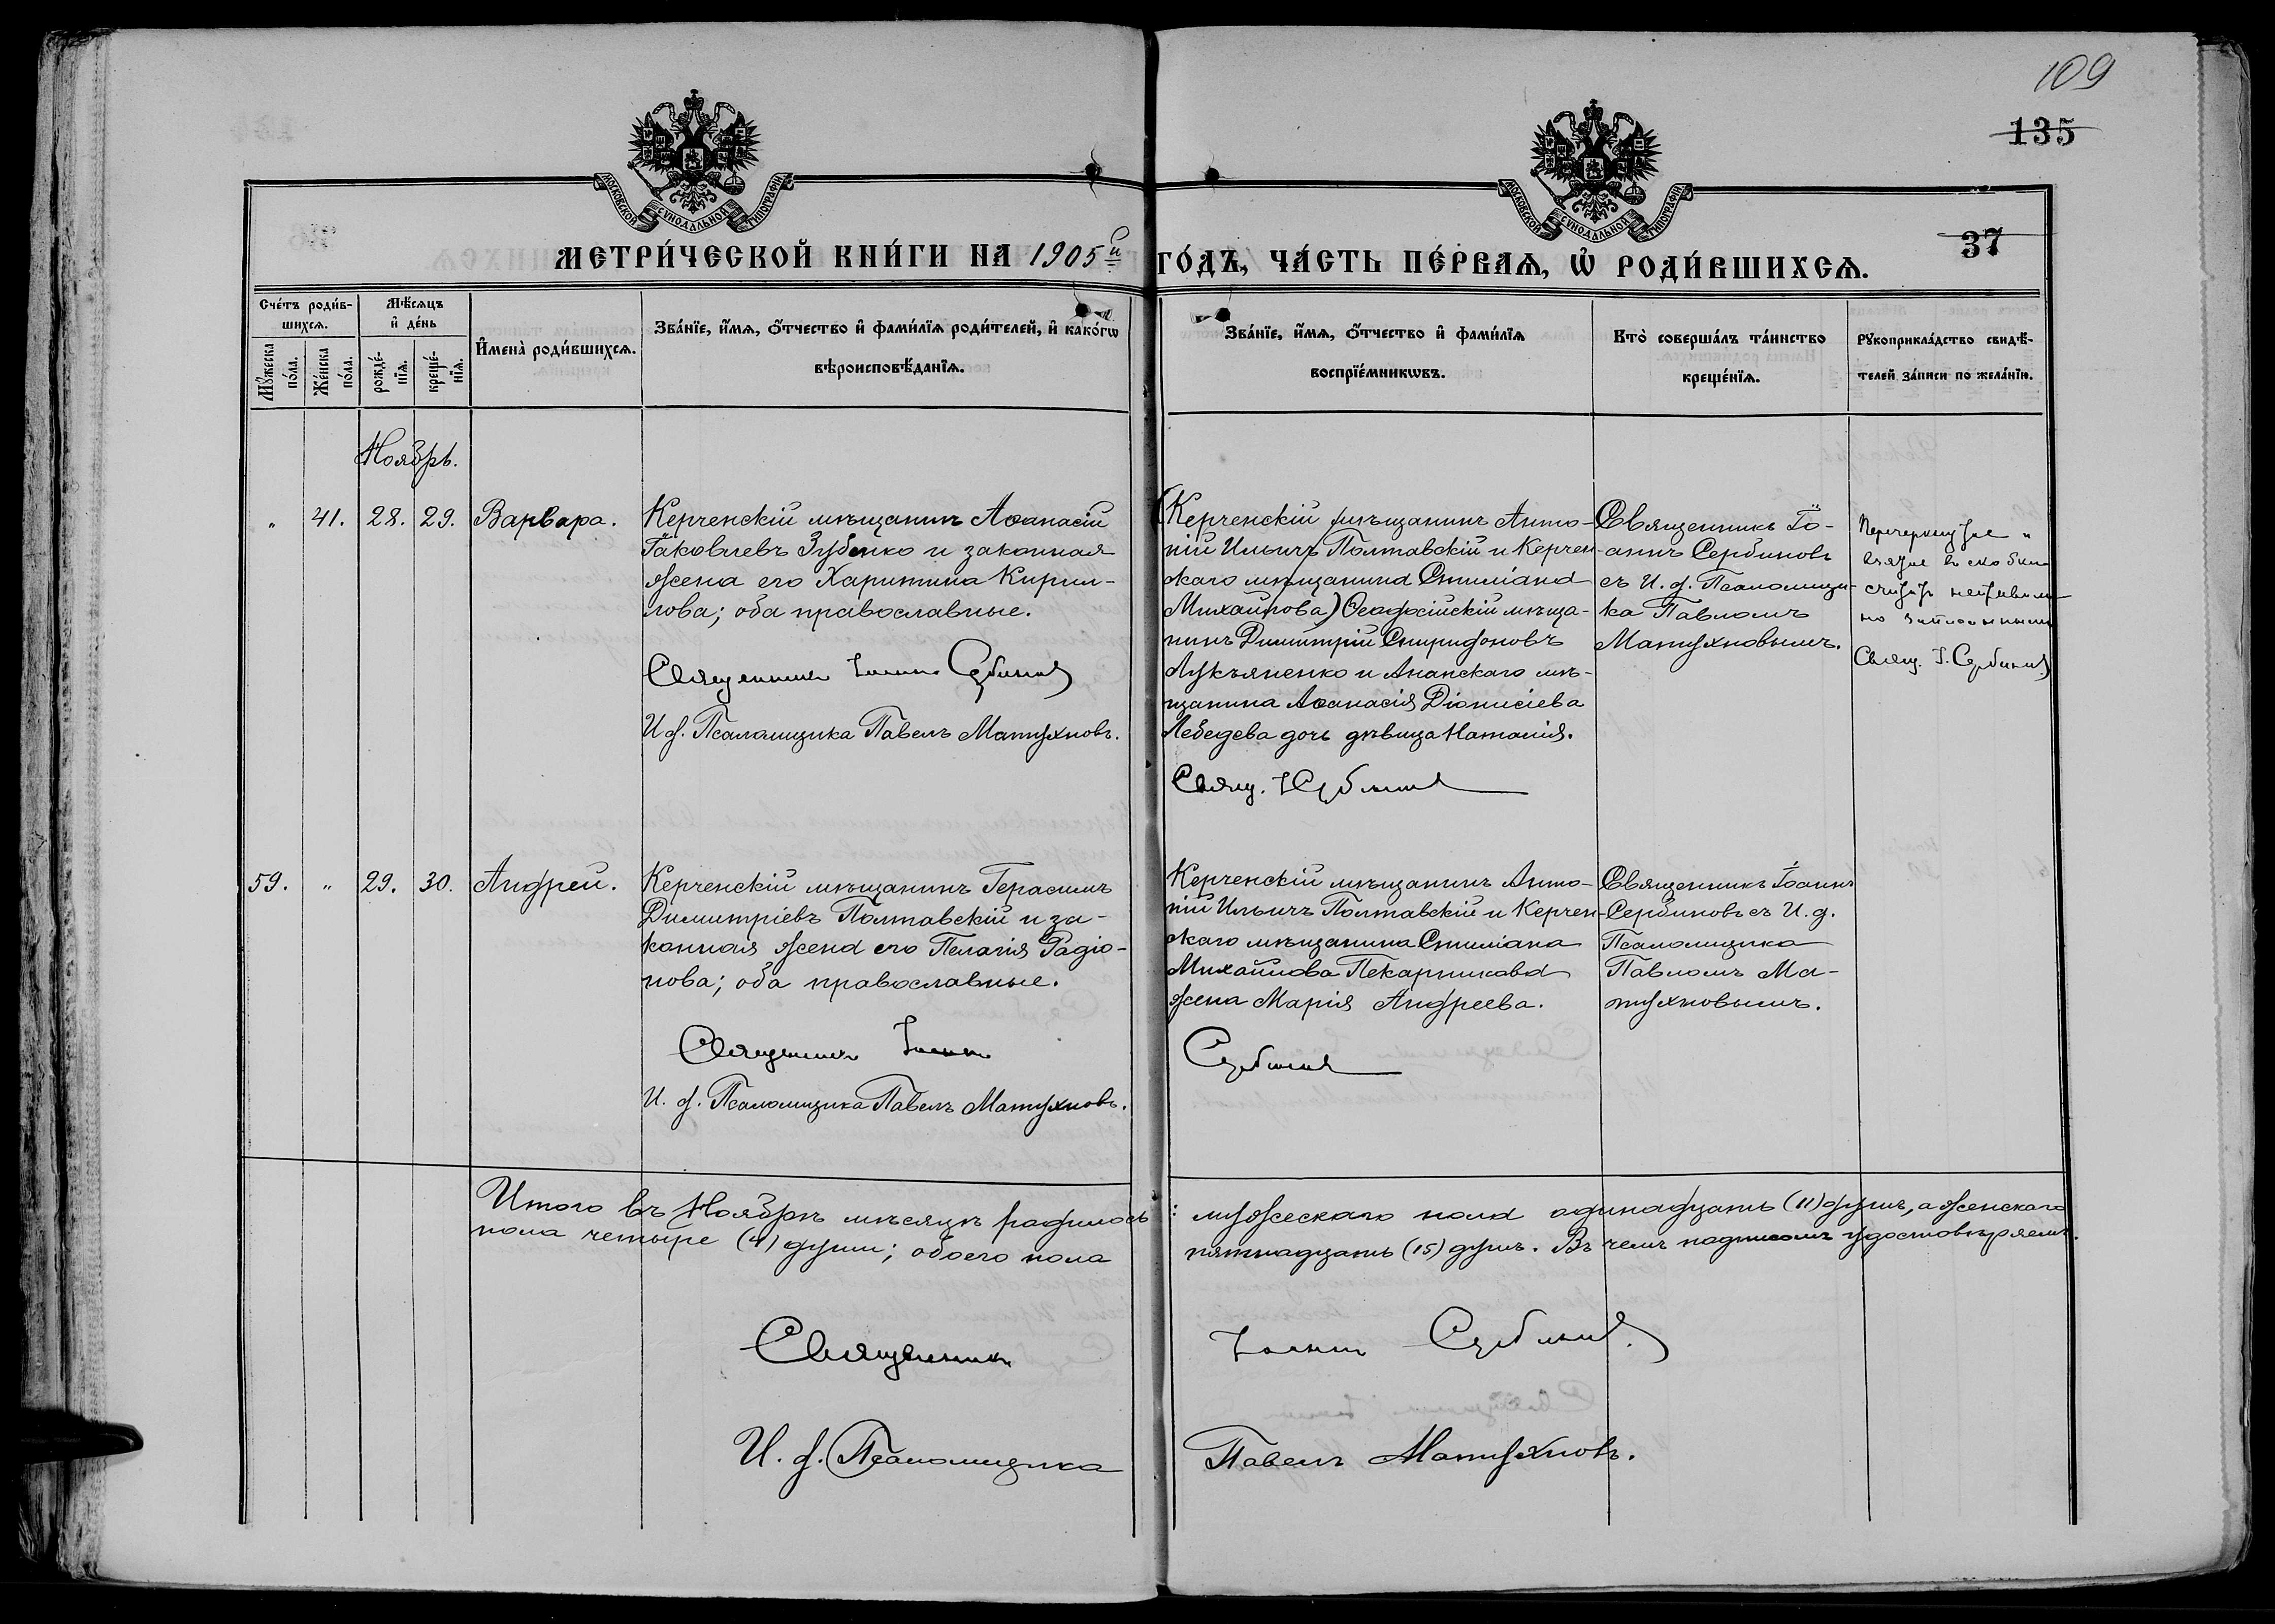 109
135
37
МОСКОВСКОЙ СѴНОДАЛЬНОЙ ТИПОГРАФІИ
МОСКОВСКОЙ СѴНОДАЛЬНОЙ ТИПОГРАФІИ
МЕТРИ́ЧЕСКОЙ КНИ́ГИ НА 1905й
ГО́ДЪ, ЧА́СТЬ ПЕ́РВАѦ, Ѡ҆ РОДИ́ВШИХСѦ.
Сче́тъ роди́в-
шихсѧ.
Мꙋ́жеска
по́ла.
Же́нска
по́ла.
Мѣ́сѧцъ
и҆ де́нь
рожде́-
нїѧ.
креще́-
нїѧ.
И҆мена̀ роди́вшихсѧ.
Зва́нїе, и҆́мѧ, ѻ҆́тчество и҆ фами́лїѧ роди́телей, и҆ како́гѡ
вѣроисповѣ́данїѧ.
Зва́нїе, и҆́мѧ, ѻ҆́тчество и҆ фами́лїѧ
воспрїе́мникѡвъ.
Кто̀ соверша́лъ та́инство
креще́нїѧ.
Рꙋкоприкла́дство свидѣ́-
телей за́писи по жела́нїю.
Ноябрь.
„ 41. 28. 29. Варвара.
Керченскій мѣщанинъ Аѳанасій
Іаковлевъ Зубенко и законная
жена его Харитина Кирил-
лова; оба православные.
Священникъ Іоаннъ Сербиновъ
И д. Псаломщика Павелъ Матухновъ.
(Керченскій мѣщанинъ Анто-
ній Ильичъ Полтавскій и Керчен-
скаго мѣщанина Стиліана
Михайлова) Ѳеодосійскій мѣща-
нинъ Димитрій Спиридоновъ
Лукьяненко и Анапскаго мѣ-
щанина Аѳанасія Діонисіева
Лебедева дочь дѣвица Наталія.
Свящ. І Сербиновъ
Священникъ Іо-
аннъ Сербиновъ
съ И. д. Псаломщи-
ка Павломъ
Матухновымъ.
Перечеркнутое и
взятое въ скобки
считать
но
Свящ. І. Сербиновъ
59. „ 29. 30. Андрей.
Керченскій мѣщанинъ Герасимъ
Димитріевъ Полтавскій и за-
конная жена его Пелагія Радіо-
нова; оба православные.
Священникъ Іоаннъ
И. д. Псаломщика Павелъ Матухновъ.
Керченскій мѣщанинъ Анто-
ній Ильичъ Полтавскій и Керчен-
скаго мѣщанина Стиліана
Михайлова Пекарникова
жена Марія Андреева.
Сербиновъ
Священникъ Іоаннъ
Сербиновъ съ И. д.
Псаломщика
Павломъ Ма-
тухновымъ.
Итого въ Ноябрѣ мѣсяцѣ родилось: мужескаго пола одинадцать (11) душъ, а женскаго
пола четыре (4) души; обоего пола пятнадцать (15) душъ. Въ чемъ подписомъ удостовѣряемъ.
Священникъ Іоаннъ Сербиновъ.
И. д. Псаломщика Павелъ Матухновъ.